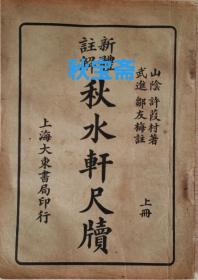 山陰 許葭村著
武進 鄒友梅註
上冊
新體
註解
秋水軒尺牘
上海大東書局印行
秋宝斋